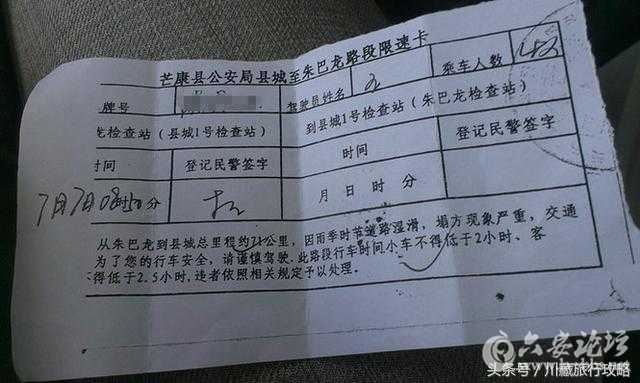 芒康县公安局县城至朱巴龙路段限速卡
牌号 驾驶员姓名 乘车人数
龙检查站（县城1号检查站） 到县城1号检查站（朱巴龙检查站）
时间 登记民警签字 时间 登记民警签字
7月7日08时50分 月 日 时 分
从朱巴龙到县城总里程约71公里，因雨季时节道路湿滑，塌方现象严重，交通
为了您的行车安全，请谨慎驾驶.此路段行车时间小车不得低于2小时、客
得低于2.5小时，违者依照相关规定予以处理。
六安论坛
头条号／川藏旅行攻略